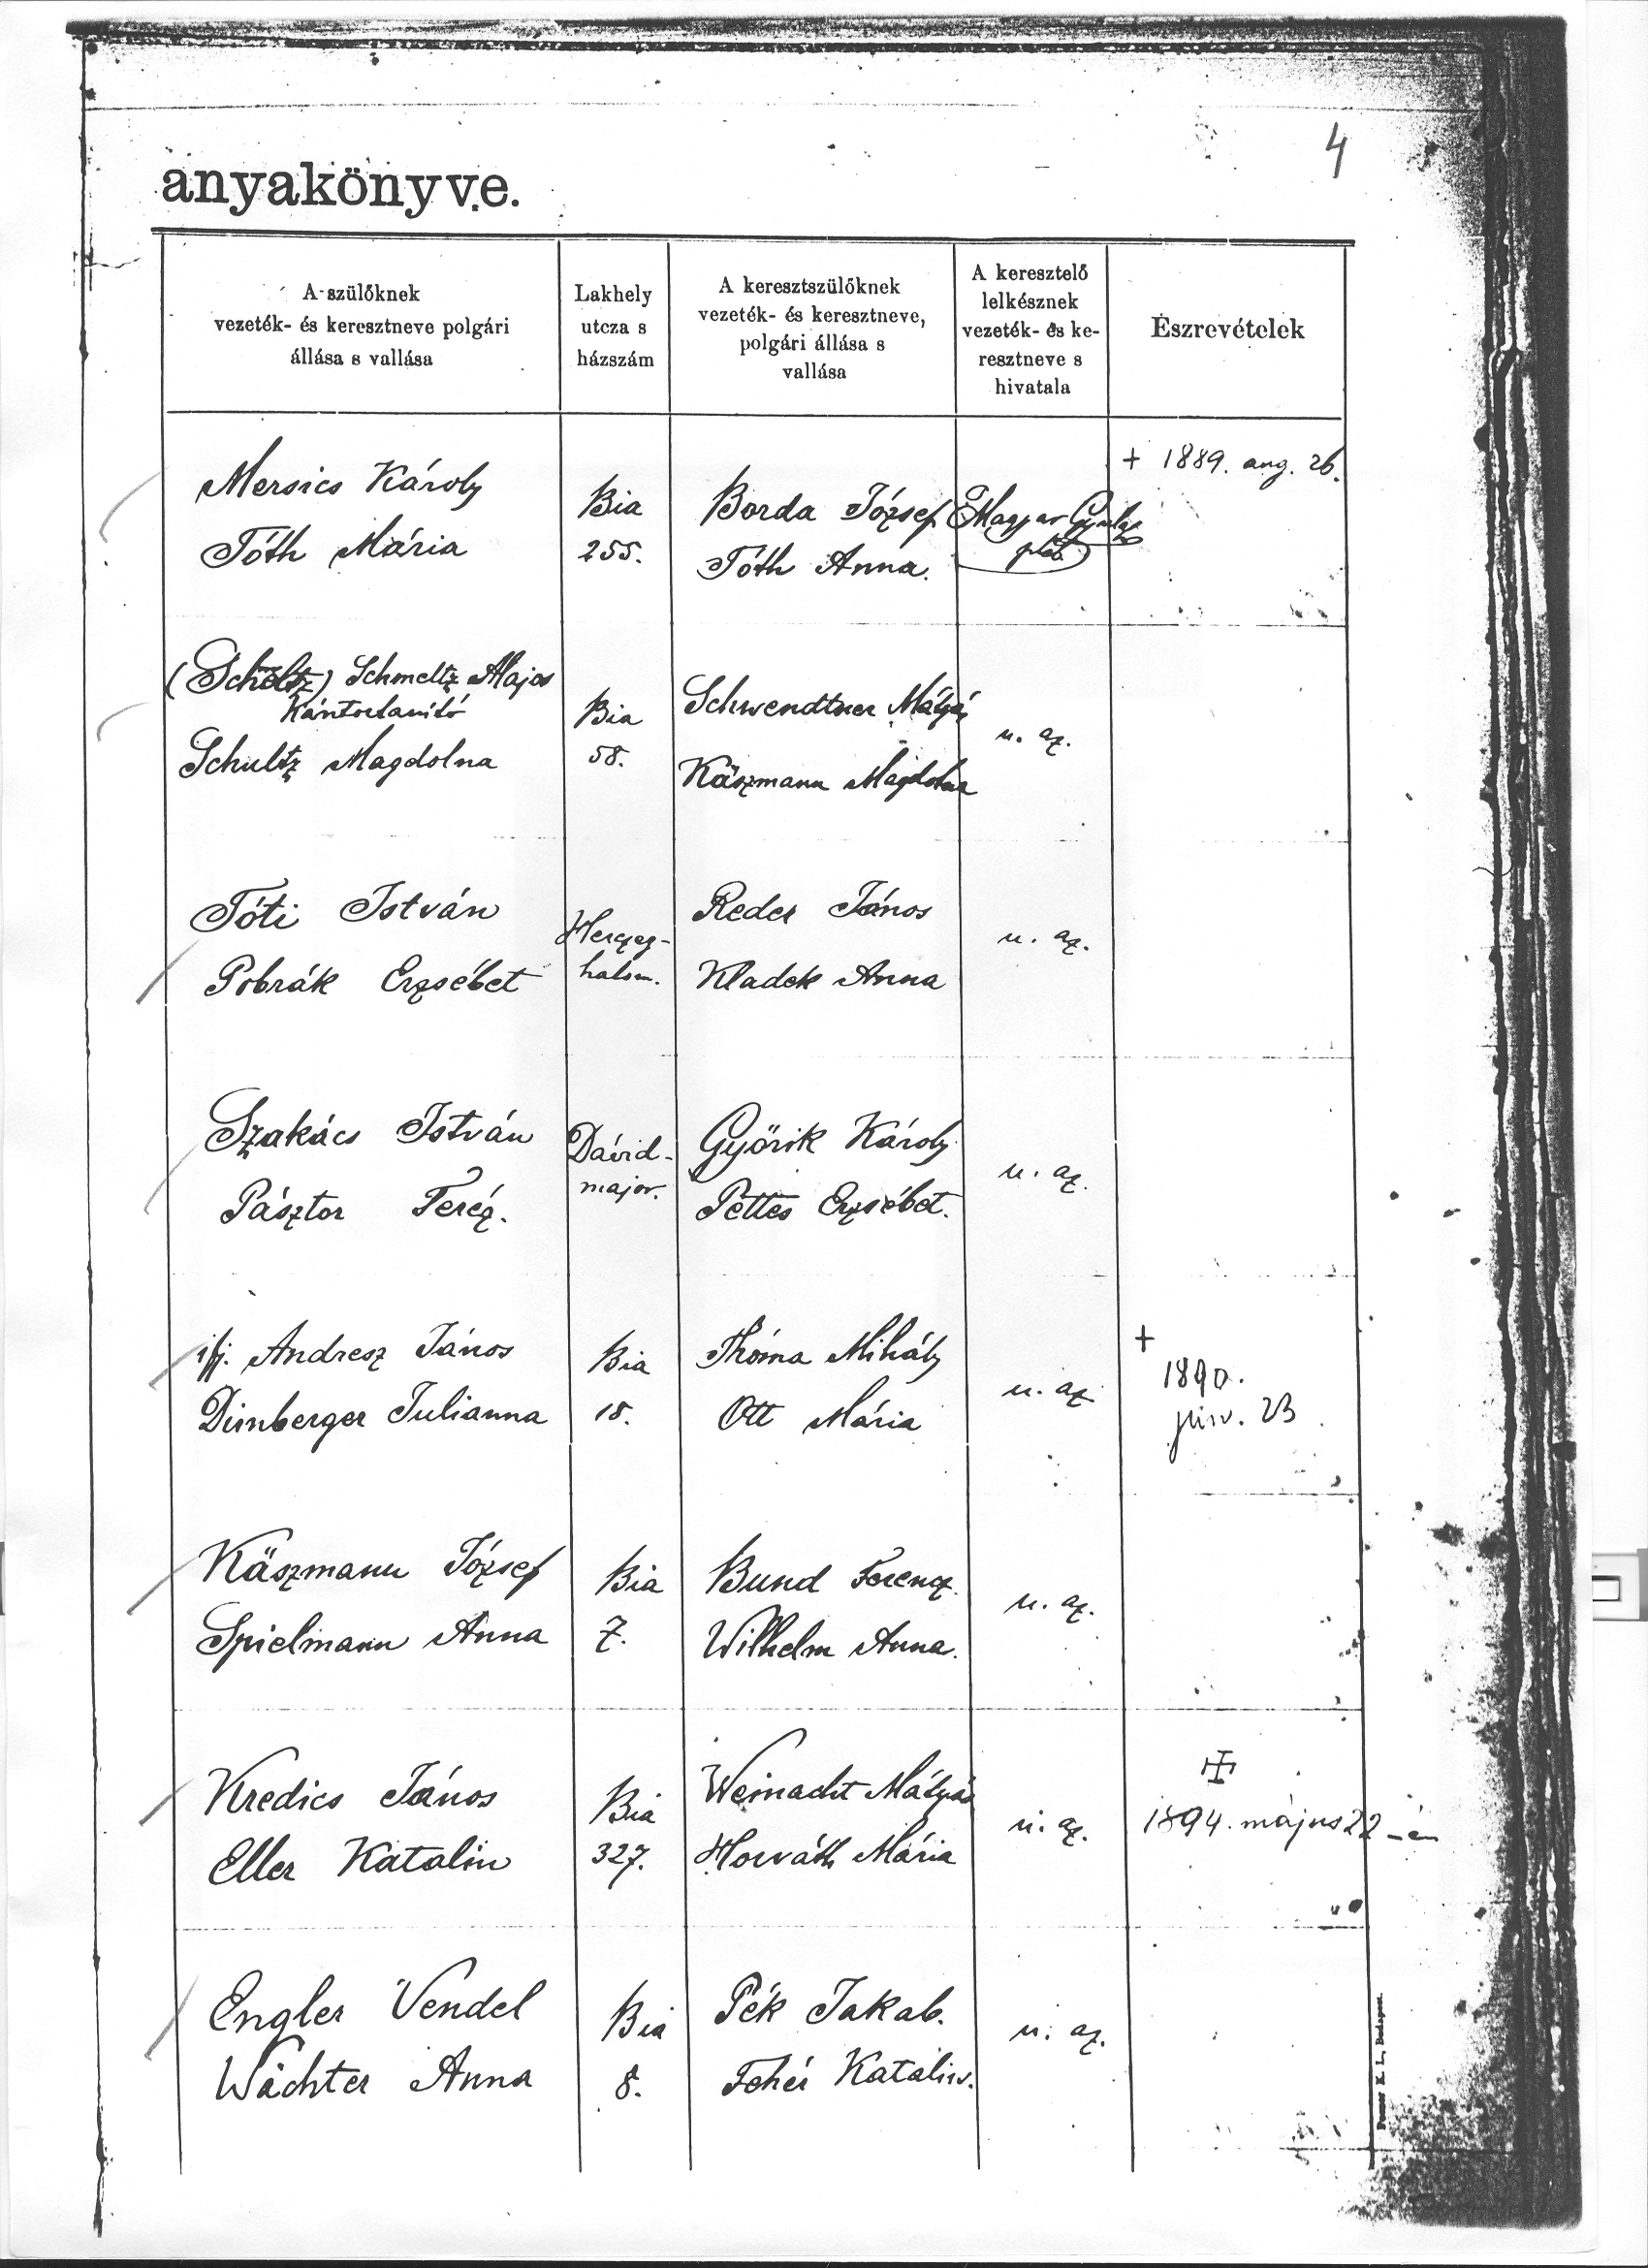 4
anyakönyve.
A szülőknek
vezeték- és keresztneve polgári
állása s vallása
Lakhely
utcza s
házszám
A keresztszülőknek
vezeték- és keresztneve,
polgári állása s
vallása
A keresztelő
lelkésznek
vezeték- és ke-
resztneve s
hivatala
Észrevételek
Mersics Károly
Tóth Mária
Bia
255.
Borda József
Tóth Anna.
Magyar Gyula
pléb.
+ 1889. aug. 26.
(Scholtz) Schmeltz Alajos
Kántortanító
Schultz Magdolna
Bia
58.
Schwendtner Mátyás
Käszmann Magdolna
u. az.
Tóti István
Pobrák Erzsébet
Herczeg-
halom.
Reder János
Kladek Anna
u. az.
Szakács István
Pásztor Teréz.
Dávid-
major.
Győrik Károly
Pettes Erzsébet.
u. az.
ifj. Andresz János
Dirnberger Julianna
Bia
18.
Thóma Mihály
Ott Mária
u. az.
+
1890.
23
Käszmann József
Spielmann Anna
Bia
7.
Bund Ferencz.
Wilhelm Anna.
u. az.
Kredics János
Eller Katalin
Bia
327.
Weinacht Mátyás
Horváth Mária
u. az.
1894. május 22-én
Engler Vendel
Wächter Anna
Bia
8.
Pék Jakab.
Fehér Katalin.
u. az.
Posner K. L., Budapest.